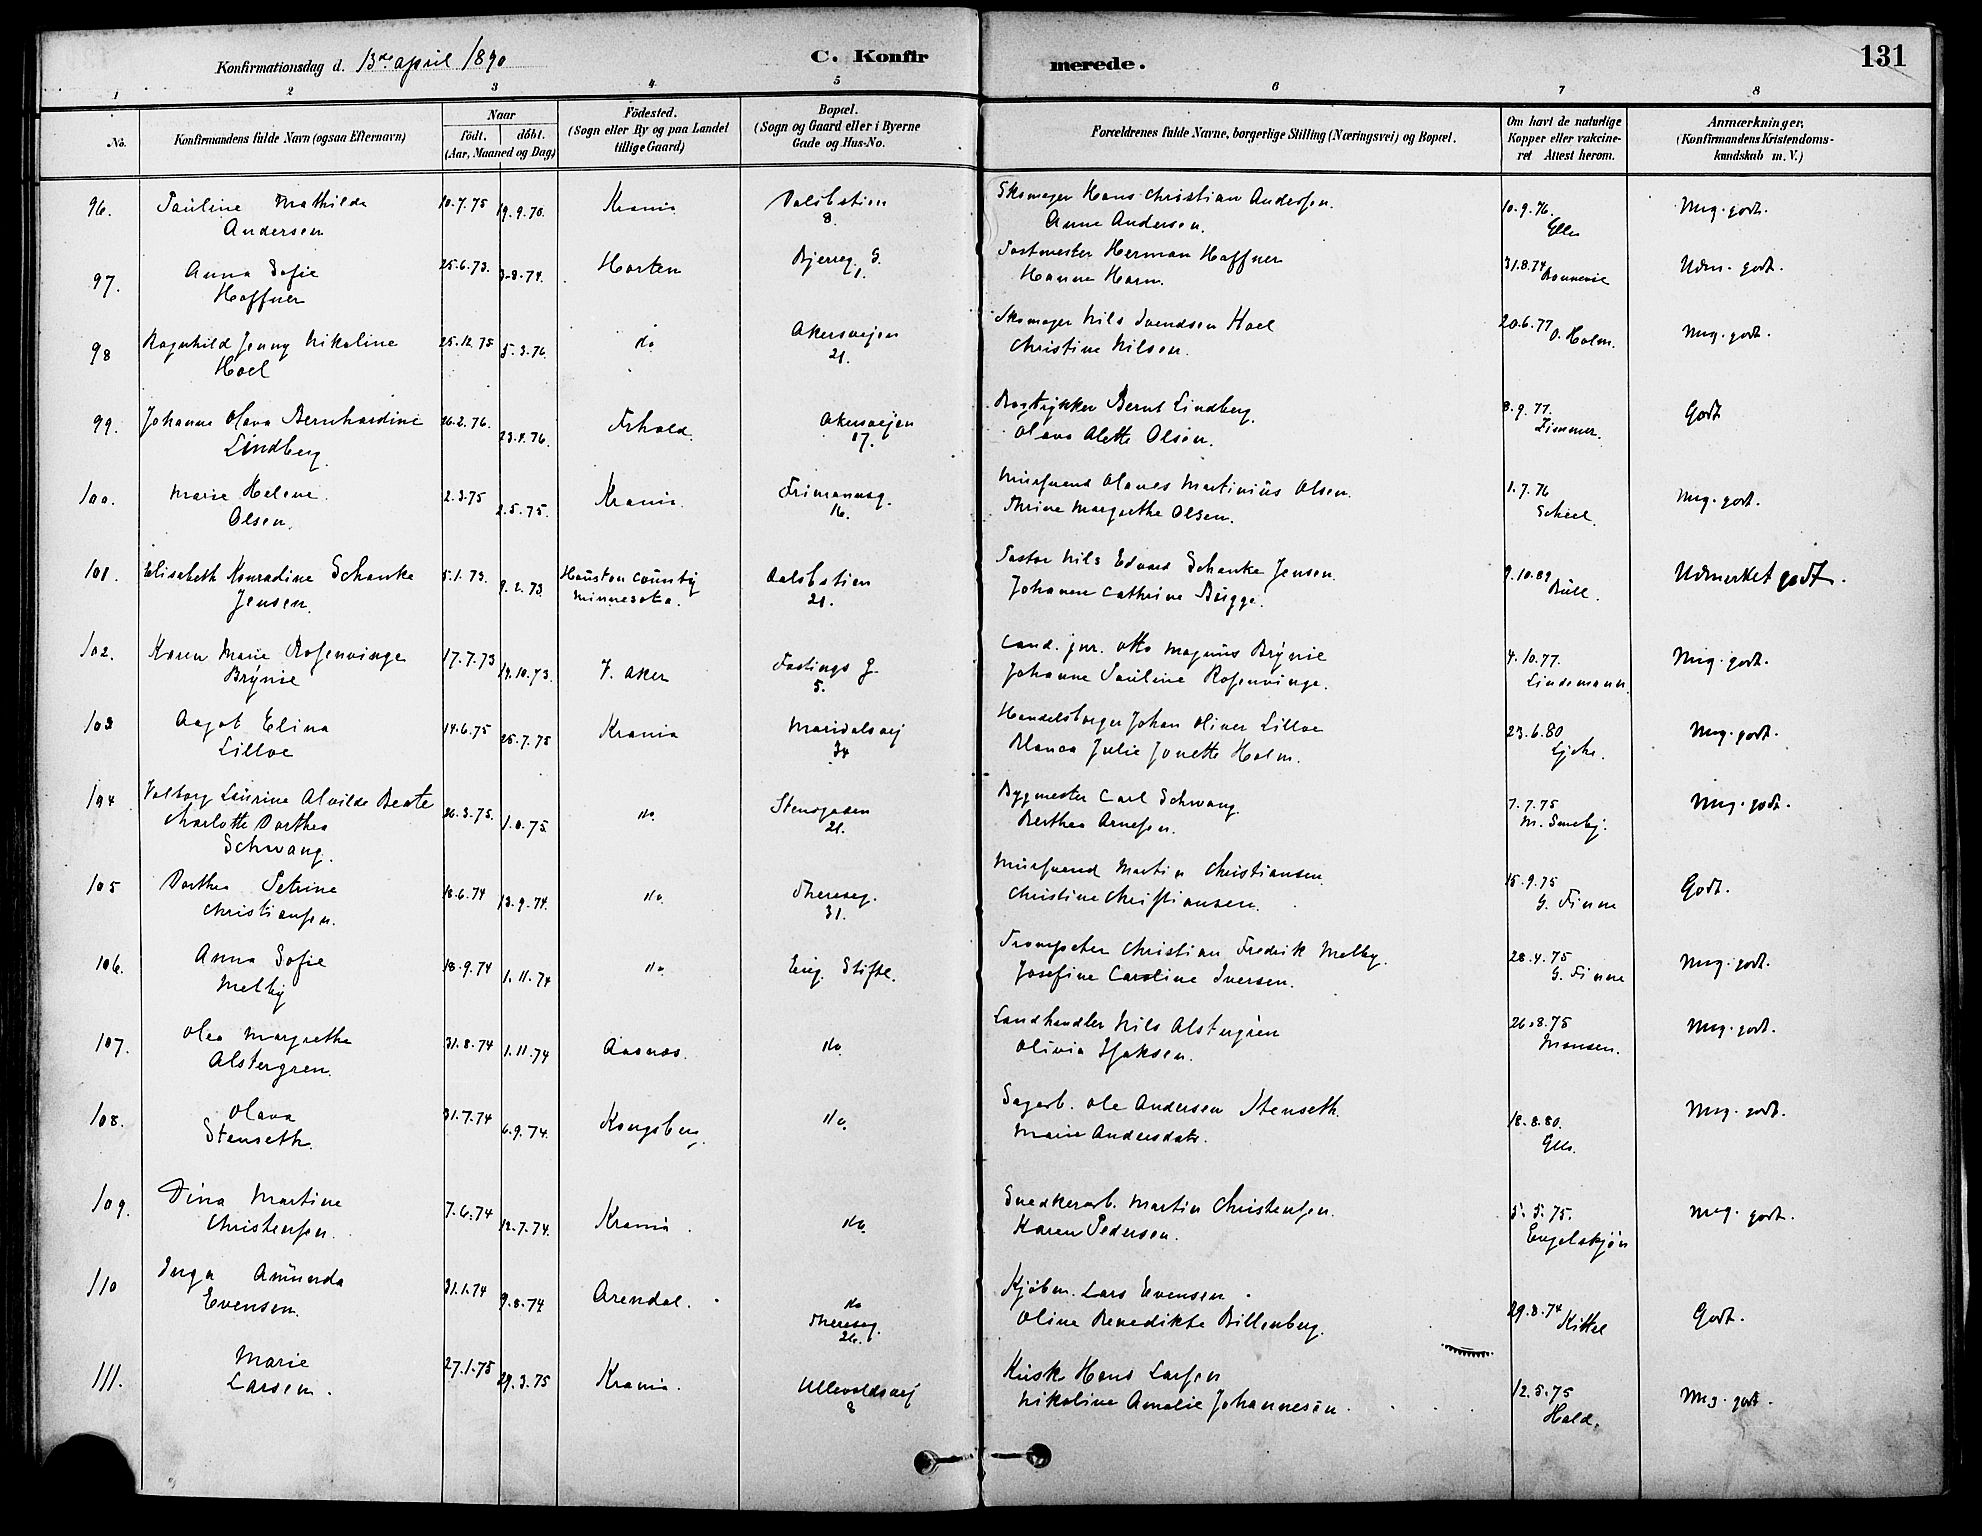 Konfirmationsdag d. 13de april 1890
C. Konfirmerede.
131
1 2 3 4 5 6 7 8
No.
Konfirmandens fulde Navn (ogsaa Efternavn)
Naar
födt. döbt.
(Aar, Maaned og Dag)
Födested.
(Sogn eller By og paa Landet
tillige Gaard)
Bopæl.
(Sogn og Gaard eller i Byerne
Gade og Hus-No.
Forældrenes fulde Navne, borgerlige Stilling (Næringsvei) og Bopæl.
Om havt de naturlige
Kopper eller vakcine-
ret Attest herom.
Anmærkninger,
(Konfirmandens Kristendoms-
kundskab m. V.)
96. Pauline Mathilde 10.7.75 19.9.75. Krania Dalsbstien Skomager Hans Christian Andersen. 10.9.76. Meg. godt.
Andersen 8. Anne Andersen.
97. Anna Sofie 25.6.73. 3.8.74. Horten Bjerreg. G. Postmester Herman Haffner 31.8.74 Udm. godt.
Haffner 1. Hanne Horn.
98 Ragnhild Jenny Nikoline 25.12.75 5.3.76. do Akersveien Skomager Nils Svendsen Hoel 20.6.77 O. Holm. Meg. godt.
Hoel 21. Christine Nilsen.
99. Johanne Olava Bernhardine 26.2.76. 23.4.76. Frhald. Akersveien Bogtrykker Bernt Lindberg. 8.9.77. Godt
Lindberg 17. Olava Alette Olsen. Zimmer.
100. Marie Helene 2.3.75 2.5.75. Krania. Frimannsg. Murswend Olaves Martinius Olsen. 1.7.76 Meg. godt.
Olsen. 16. Thrine Margrethe Olsen. Scheel.
101. Elisabeth Konradine Schanke 5.1.73. 9.2.73. Houston County Dalsbstien Pastor Nils Edvard Schanke Jensen. 9.10.89 Udmerket godt.
Jensen. Minnesota. 21. Johanne Cathrine Bugge. Bull.
102. Karen Marie Rosenvinge 17.7.73 19.10.73. V. Aker Fastings G. Cand. jur. Otto Magnus Brynie 4.10.77. Meg. godt.
Brynie 5. Johanne Pauline Rosenvinge. Lindemann.
103 Aagot Elina 14.6.75 25.7.75 Krania Maridalsvej Handelsborger Johan Oliver Lilloe 23.6.80 Meg. godt.
Lilloe 34 Blanca Julie Jonette Holm.
104 Valborg Laurine Alvilde Beate 26.3.75. 1.8.75. do. Stensgaden Bygmester Carl Schwang. 7.7.75 Meg. godt.
Charlotte Dorthea 21. Berthea Arnesen. M. Smeby.
Schwang.
105 Dorthea Petrine 18.6.74 13.9.74. do. Thereseg. Murswend Martin Christiansen. 15.9.75 Godt.
Christiansen. 31. Christine Christiansen. G. Finne
106. Anna Sofie 18.9.74 1.11.74 do. Eug. Stifte. Trompeter Christian Fredrik Melby. 28.4.75 Meg. godt.
Melby Josefine Caroline Iversen. G. Finne
107. Olea Margrethe 31.8.74 1.11.74 Aasnes. do. Landhandler Nils Alstergren 26.8.75 Meg. godt.
Alstergren. Olivia Isaksen. Monsen.
108. Olava 31.7.74 6.9.74. Kongsberg. do. Sagarb. Ole Andersen Stenseth. 18.8.80. Meg. godt.
Stenseth. Marie Andersdatr.
109. Dina Martine 7.6.74 12.7.74. Krania. do. Snedkerarb. Martin Christensen. 5.5.75. Meg. godt.
Christensen. Karen Pedersen. Engelskjøn
110 Inga Amunda 31.1.74 9.8.74 Arendal. do Kjøbm. Lars Evensen. 29.8.74 Kittel Godt.
Evensen. Thereseg. Oline Benedikte Billenberg.
26.
111. Marie 27.1.75 29.3.75 Krania. Ullevoldsvej Kusk Hans Larsen 12.5.75 Meg. godt.
Larsen. 8 Nikoline Amalie Johannesen. Hald.